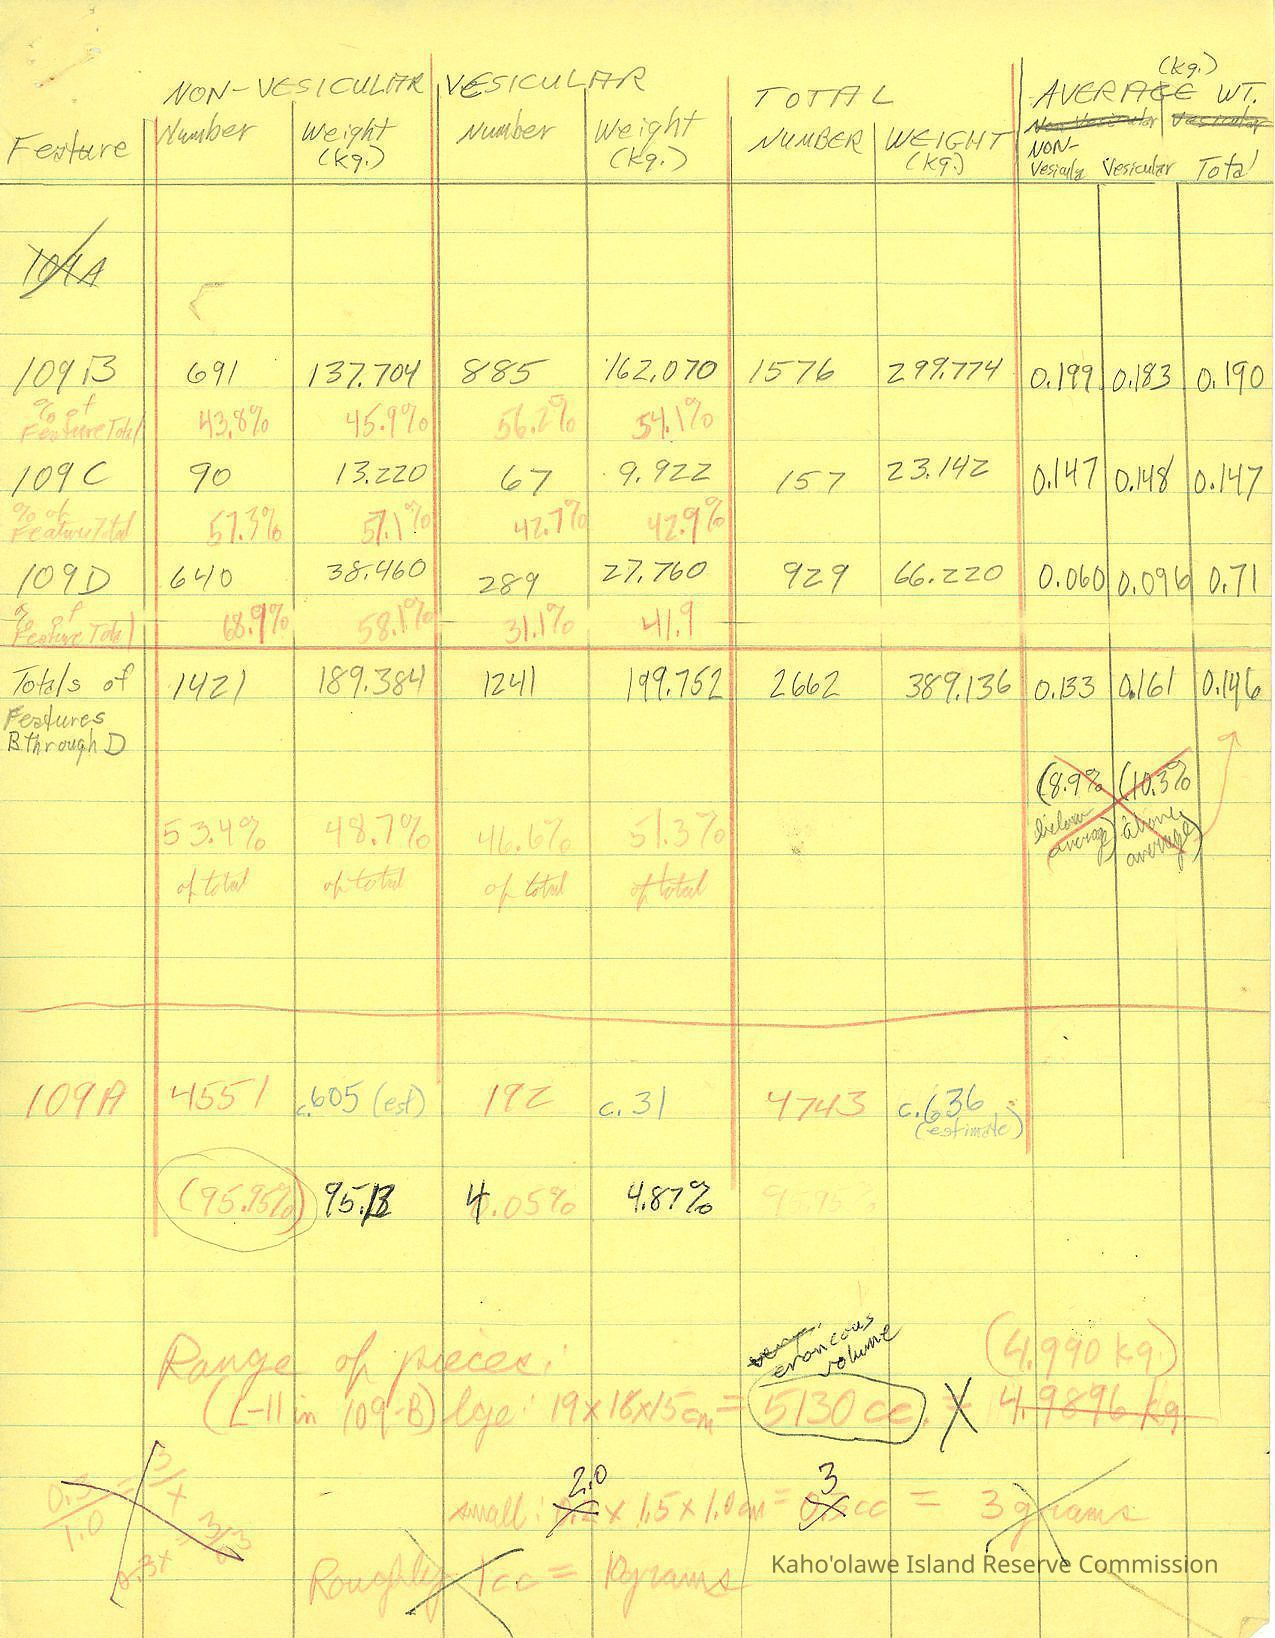 (kg.)
NON-VESICULAR VESICULAR TOTAL AVERAGE WT.
Feature Number Weight Number Weight NUMBER WEIGHT Non Vesicular Vesicular
(kg.) (kg.) (kg.) NON-
Vesicular Total
109A
109B 691 137.704 885 162.070 1576 299.774 0.199 0.183 0.190
% of
Feature Total 43.8% 45.9% 56.2% 54.1%
109C 90 13.220 67 9.922 157 23.142 0.147 0.148 0.147
% of
Feature Total 57.3% 57.1% 42.7% 42.9%
109D 640 38.460 289 27.760 929 66.220 0.060 0.096 0.71
% of
Feature Total 68.9% 58.1% 31.1% 41.9
Totals of 1421 189.384 1241 199.752 2662 389.136 0.133 0.161 0.146
Features
B through D
(8.9% (10.3%
below above
average) average)
53.4% 48.7% 46.6% 51.3%
of total of total of total of total
109A 4551 c.605 (est) 192 c. 31 4743 c.636
(estimate)
(95.95%) 95.13 4.05% 4.87%
eroneous
volume
Range of pieces: (4.990 kg.)
(L-11 in 109-B) lge: 19x18x15cm = 5130 cc. X = 4.9896 kg
2.0 3
small: x 1.5 x 1.0 cm = cc = 3 grams
Roughly 1 cc = grams
0.3
1.0
Kaho'olawe Island Reserve Commission